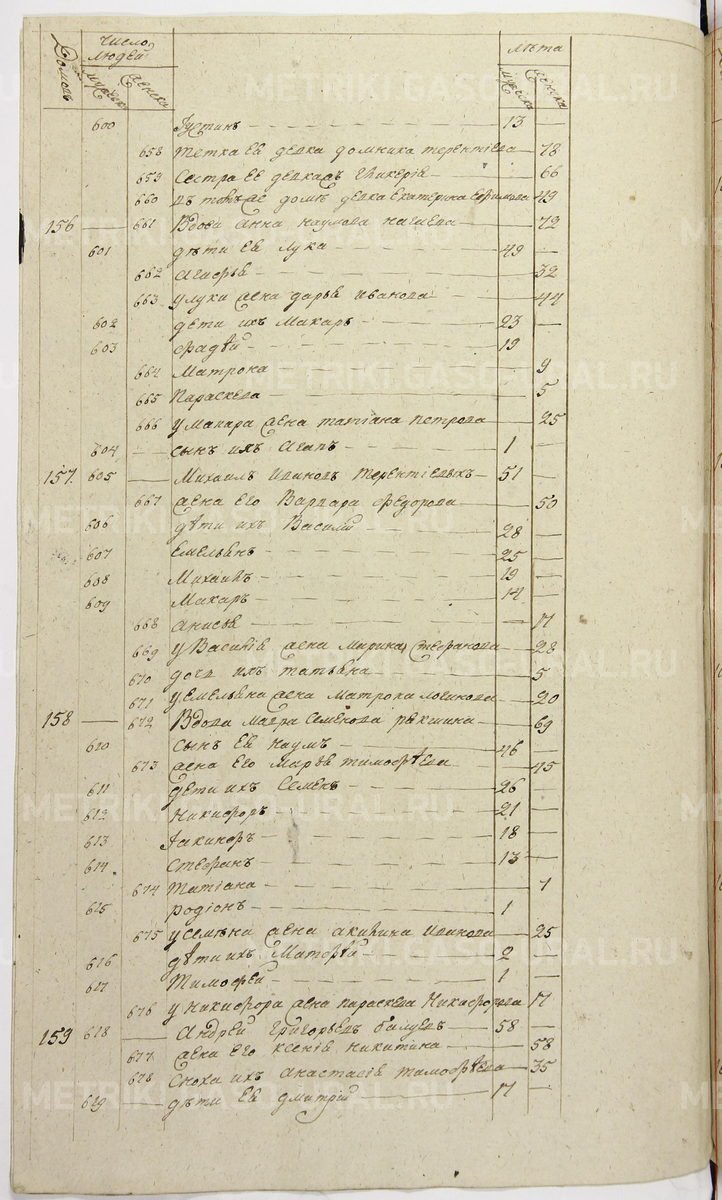 Домовъ Число людей Лѣта
мужеска женска мужеска женска
600 Іустинъ 13
658 тетка Ея девка домника терентіева 78
659 Сестра Ее девкажъ Гликерія 66
660 въ томъ же домѣ девка Екатерина Ефимова 49
156 661 Вдова Анна наумова 72
601 дѣти Ея лука 49
662 Агафья 32
663 у луки жена дарья иванова 44
602 дети ихъ Макаръ 23
603 Фадѣй 19
664 Матрона 9
665 Параскева 5
666 у макара жена татіана петрова 25
604 сынъ ихъ Агапъ 1
157 605 Михаилъ Ивановъ терентіевыхъ 51
667 жена его Варвара Федорова 50
606 дѣти ихъ Василій 28
607 Емельянъ 25
608 Михаилъ 19
609 Макаръ 14
668 Анисья 17
669 у Василія жена Марина Стефанова 28
670 дочь ихъ татьяна 5
671 у Емельяна жена матрона логинова 20
158 672 Вдова мавра Семенова 69
610 сынъ Ея наумъ 46
673 жена его Марья тимофѣева 45
611 дети ихъ Семенъ 26
612 Никифоръ 21
613 Іакинфъ 18
614 Стефанъ 13
674 Татіана 7
615 родіонъ 1
675 у семена жена акилина Иванова 25
616 дѣти ихъ Матфѣй 2
617 Тимофей 1
676 у Никифора жена параскева Никифорова 17
159 618 Андрей григорьевъ 58
677 жена его ксенія никитина 58
678 Сноха ихъ анастасія тимофѣева 35
619 дѣти Ея дмитрій 17
METRIKI.GASO-URAL.RU